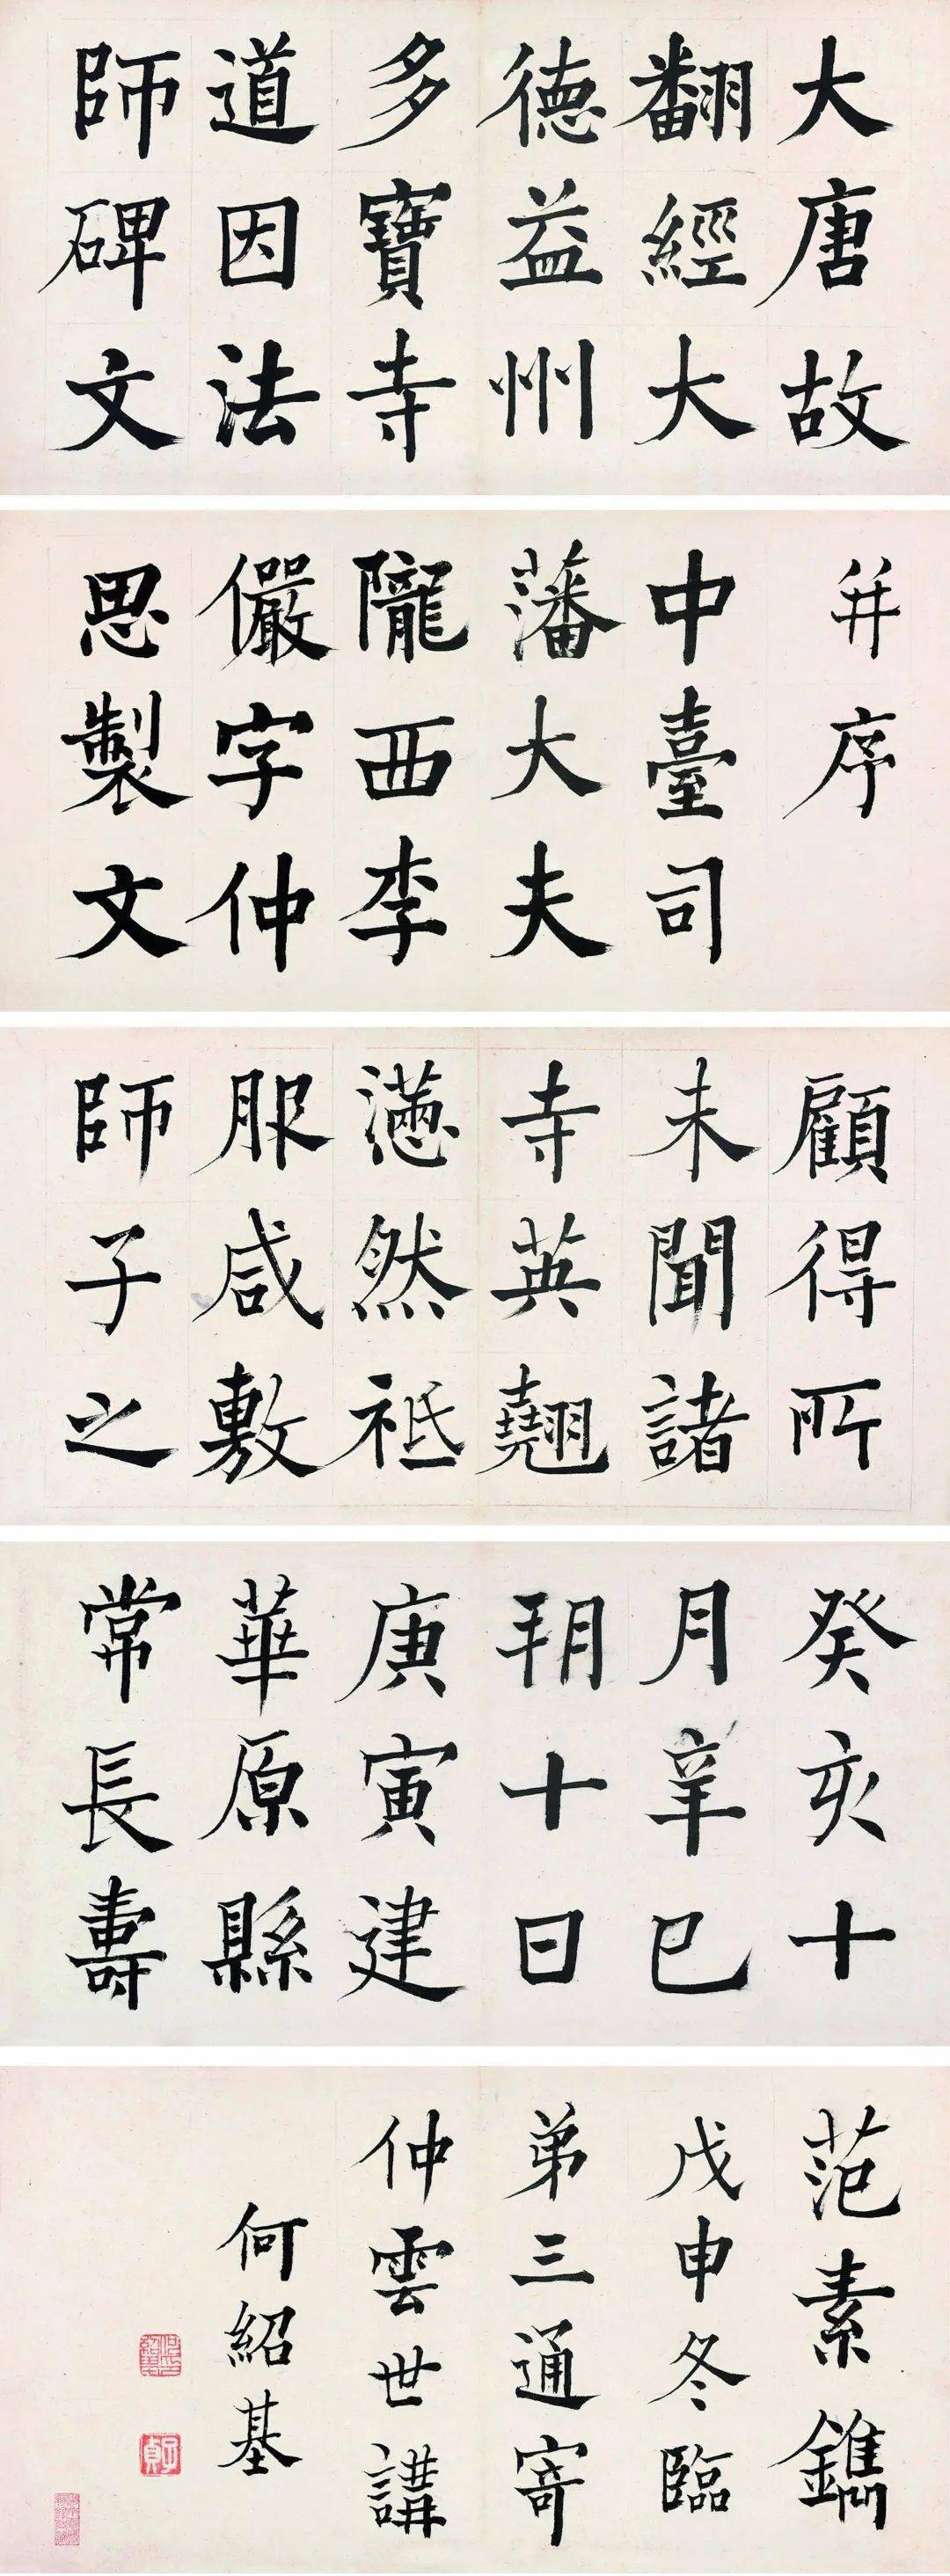 大唐故
翻經大
德益州
多寶寺
道因法
師碑文
并序
中臺司
藩大夫
隴西李
儼字仲
思製文
顧得所
未聞諸
寺英翹
懣然祗
服咸敷
師子之
癸亥十
月辛巳
朔十日
庚寅建
華原縣
常長壽
范素鐫
戊申冬臨
弟三通寄
仲雲世講
何紹基
何紹基印
子貞